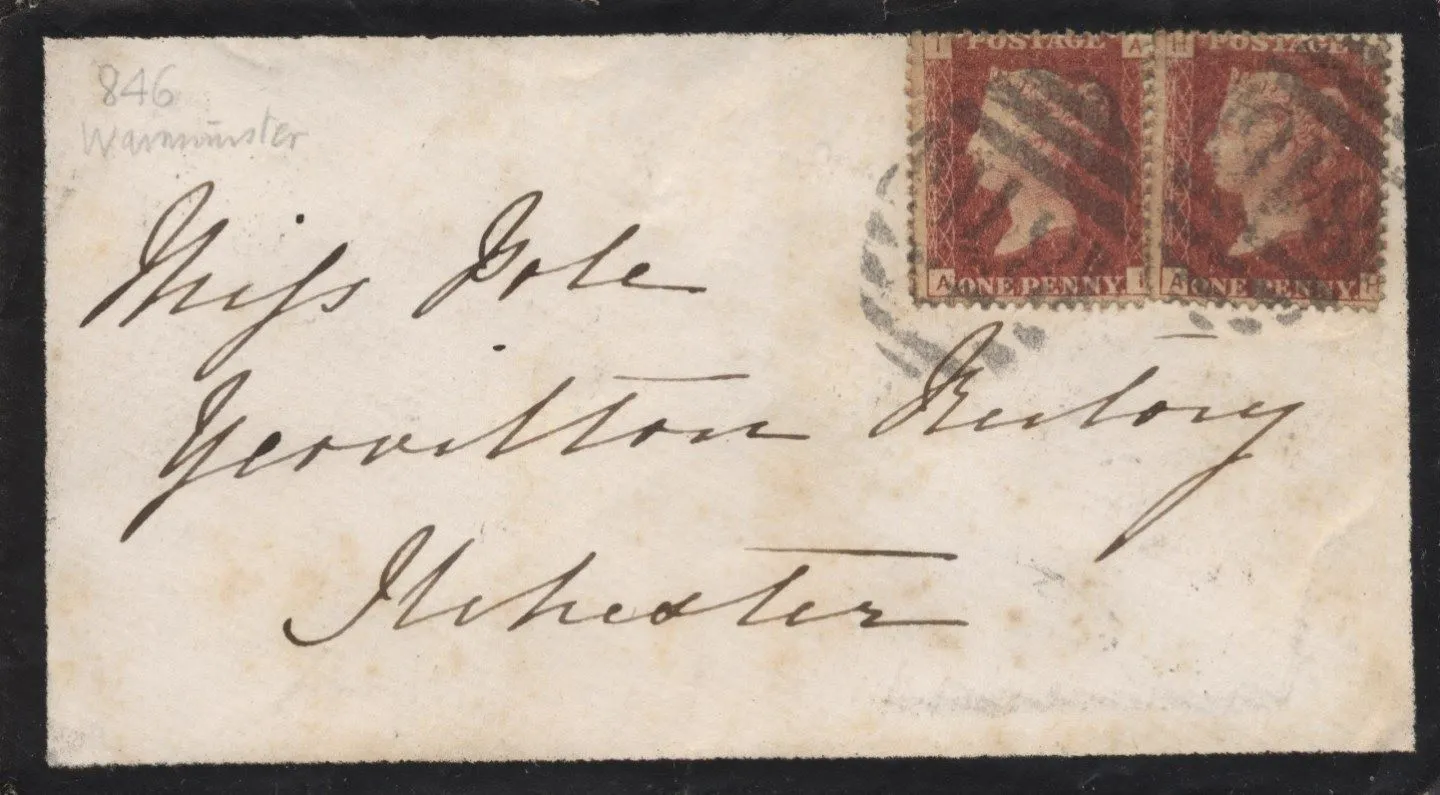 846
Warminster
I POSTAGE A H POSTAGE
A ONE PENNY I A ONE PENNY H
Miss Pole
Yeovilton Rectory
Ilchester